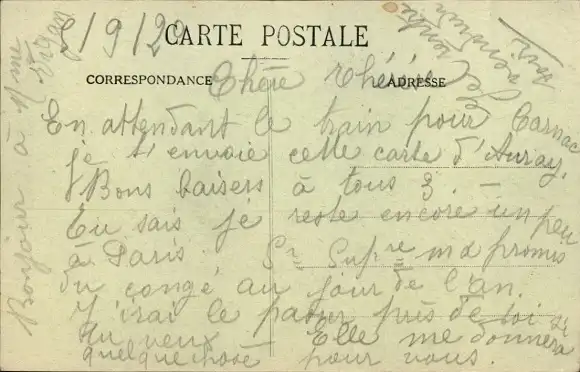 5/9/20
CARTE POSTALE
CORRESPONDANCE
ADRESSE
Chère Thérèse
En attendant le train pour Carnac
je t'envoie cette carte d'Auray.
Bons baisers à tous 3. —
Tu sais je reste encore un peu
à Paris Sr Supre m'a promis
du congé au jour de l'an.
J'irai le passer près de toi si
tu veux — Elle me donnera
quelque chose pour vous.
Bonjour à Mme